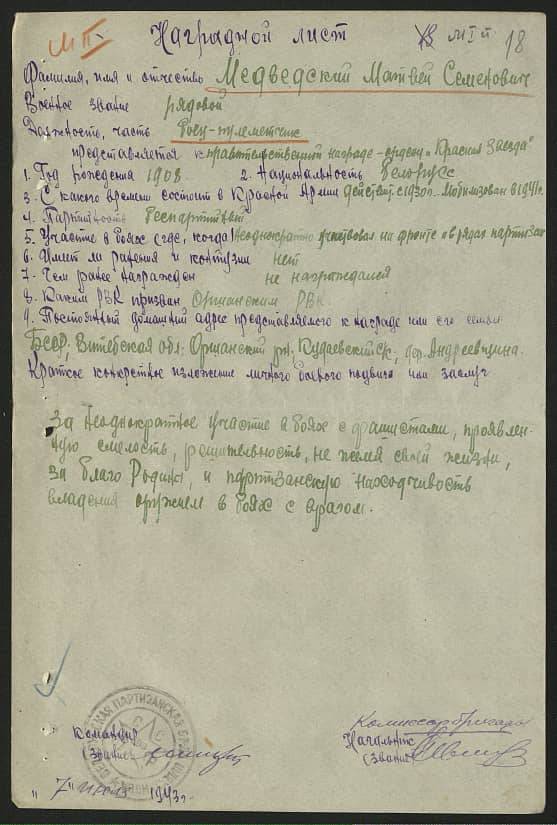 Наградной лист
18
Фамилия, имя и отчество Медведский Матвей Семенович
Военное звание рядовой
Должность, часть боец-пулеметчик
представляется к правительственной награде - орден "Красная Звезда"
1. Год рождения 1908 2. Национальность Белорус
3. С какого времени состоит в Красной Армии действ. с 1930г. Мобилизован в 1941г.
4. Партийность беспартийный
5. Участие в боях (где, когда) неоднократно участвовал на фронте и в рядах партизан
6. Имеет ли ранения и контузии нет
7. Чем ранее награжден не награждался
8. Каким РВК призван Оршанским РВК
9. Постоянный домашний адрес представляемого к награде или его семьи
БССР, Витебская обл. Оршанский рн. дер. Андреевщина.
Краткое конкретное изложение личного боевого подвига или заслуг
За неоднократное участие в боях с фашистами, проявлен-
ную смелость, решительность, не жалея своей жизни,
за благо Родины, и партизанскую находчивость
владения оружием в боях с врагом.
ПАРТИЗАНСКАЯ
Комиссар бригады
Командир
Начальник
(звание)
(звание)
"7" 1943г.